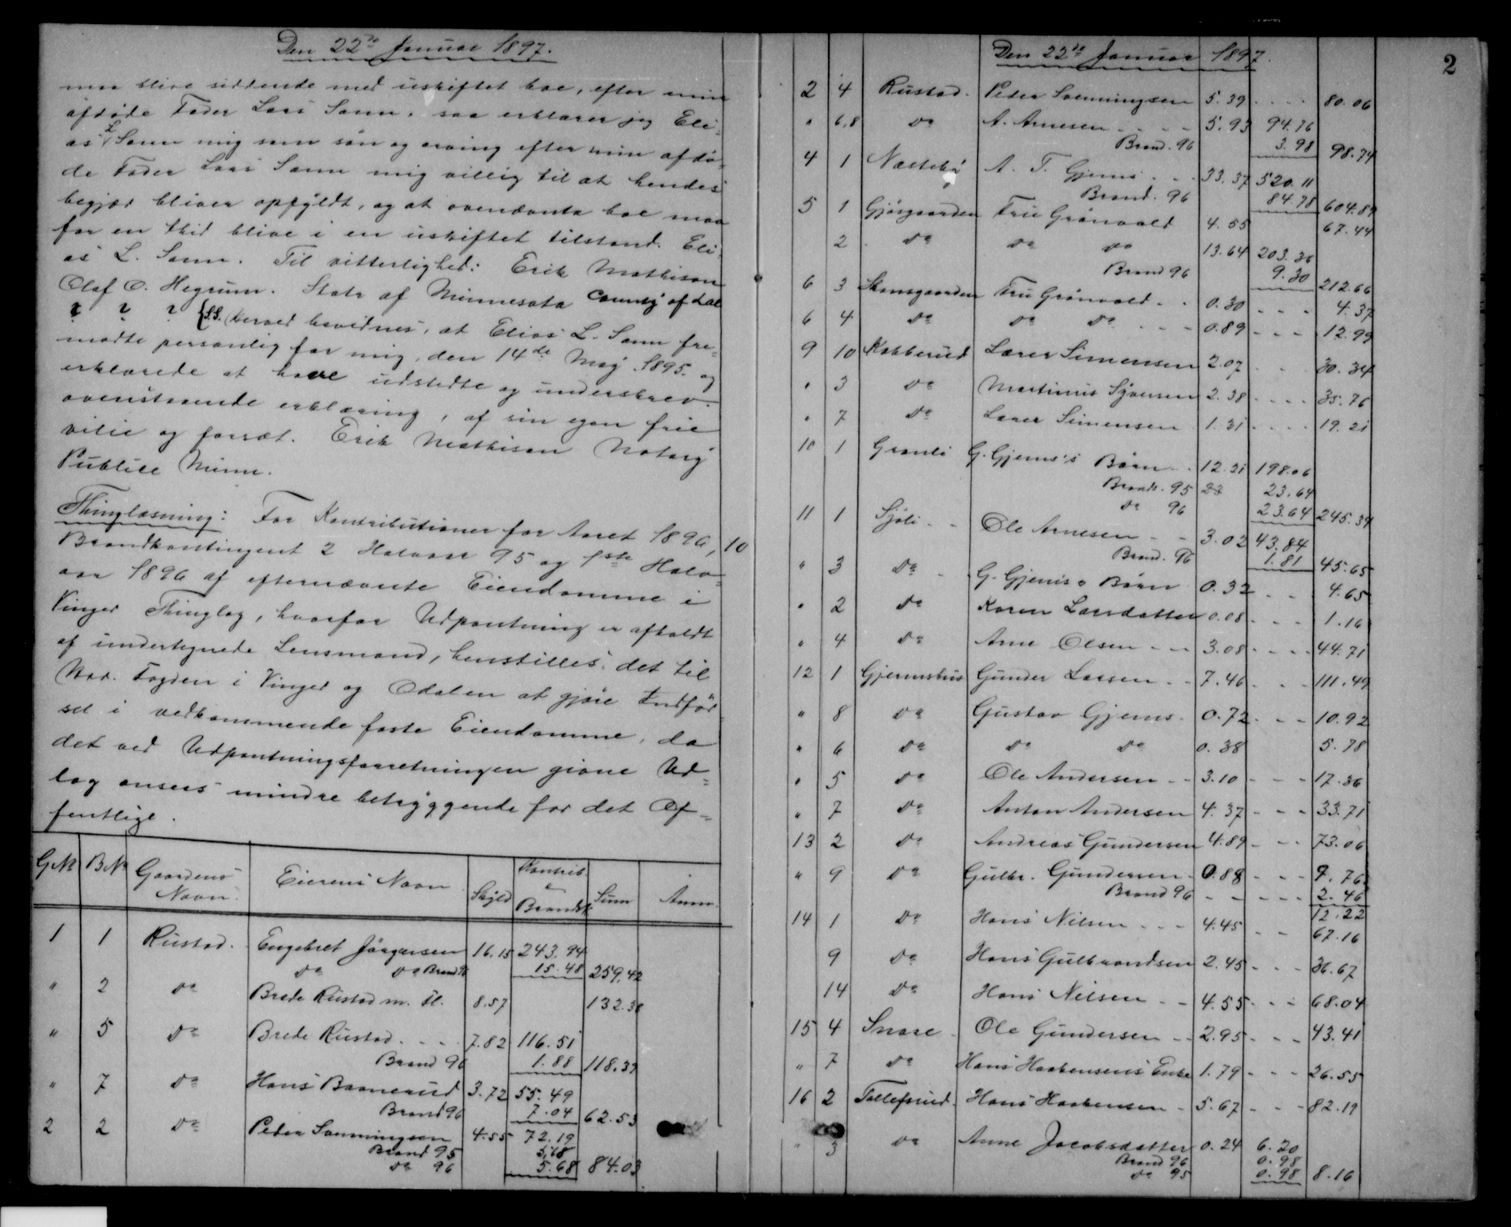 Den 22de Januar 1897.
maa blive siddende med uskiftet boe, efter min
afdøde Fader Lars Sann, saa erklærer jeg Eli-
as L. Sann mig som søn og arving efter min afdø-
de Fader Lars Sann mig villig til at hendes
begjær bliver oppfyldt, og at ovennævnte boe maa
for en tid blive i en uskiftet tilstand. Eli-
as L. Sann. Til vitterlighed: Erik Mathison
Olaf O. Hegrum. State af Minnesota County of Lac
? ? ? {SS. Herved bevidnes, at Elias L. Sann fre-
mødte personlig for mig, den 14de Maj 1895 og
erklærede at have udstedte og underskrev
ovenstaaende erklæring, af sin egen frie
vilie og forsæt. Erik Mathison Notary
Publice Minn.
Thinglæsning: For Kontributioner for Aaret 1896, 10
Brandkontingent 2 Halvaar 95 og 1ste Halv-
aar 1896 af efternævnte Eiendomme i
Vinger Thinglag, hvorfor Udpantning er afholdt
af undertegnede Lensmand, henstilles det til
Hrr. Fogden i Vinger og Odalen at gjøre Indfør-
sel i vedkommende faste Eiendomme, da
det ved Udpantningsforretningen givne Ud-
læg ansees mindre betryggende for det Of-
fentlige.
G.No B.No Gaardens Navn Eierens Navn Skyld Kontrib. & Brandk. Sum Anm.
1 1 Rustad. Engebret Jørgensen 16.15 243.94
Do Do Brandk 15.48 259.42
" 2 Do Brede Rustad m. Fl. 8.57 132.38
" 5 Do Brede Rustad 7.82 116.51
Brand 96 1.88 118.39
" 7 Do Hans Baanerud 3.72 55.49
Brand 96 7.04 62.53
2 2 Do Peder Sømningsen 4.55 72.19
Brand 95 5.68
Do 96 5.68 84.03
Den 22de Januar 1897. 2
2 4 Rustad. Peder Sømningsen 5.39 80.06
" 6,8 Do A. Arnesen 5.93 94.76
Brand. 96 3.98 98.74
4 1 Næstebø A. T. Gjems 33.37 520.11
Brand. 96 84.78 604.89
5 1 Gjøsgaarden Fru Grønvold 4.55 67.44
2 Do Do Do 13.64 203.36
Brand 96 9.30 212.66
6 3 Skansgaarden Fru Grønvold 0.30 4.37
6 4 Do Do Do 0.89 12.99
9 10 Kabberud Lærer Simensen 2.07 30.34
" 3 Do Martinus Sjøensen 2.38 35.76
" 7 Do Lærer Simensen 1.31 19.21
10 1 Granli G. Gjems's Børn 12.21 198.06
Brandk. 95 23.64
Do 96 23.64 245.34
11 1 Sjøli Ole Arnesen 3.02 43.84
Brand. 96 1.81 45.65
" 3 Do G. Gjems's Børn 0.32 4.65
" 2 Do Karen Larsdatter 0.08 1.16
" 4 Do Arne Olsen 3.08 44.71
12 1 Gjermshus Gunder Larsen 7.46 111.49
" 8 Do Gustav Gjems 0.72 10.92
" 6 Do Do Do 0.38 5.78
" 5 Do Ole Andersen 3.10 17.36
" 7 Do Anton Andersen 4.37 33.71
13 2 Do Andreas Gundersen 4.89 73.06
" 9 Do Gulbr. Gundersen 0.88 9.76
Brand 96 2.46
12.22
14 1 Do Hans Nilsen 4.45 67.16
9 Do Hans Gulbrandsen 2.45 36.67
14 Do Hans Nilsen 4.55 68.04
15 4 Snare Ole Gundersen 2.95 43.41
" 7 Do Hans Haakensens Enke 1.79 26.55
16 2 Tollefsrud. Hans Haakensen 5.67 82.19
" 3 Do Anne Jacobsdatter 0.24 6.20
Brand 96 0.98
Do 95 0.98 8.16